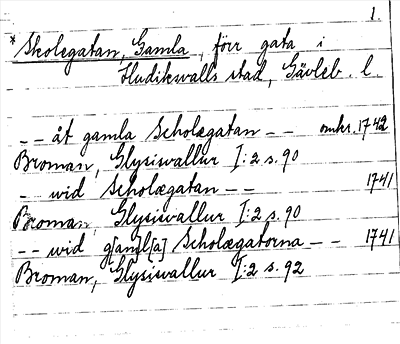 1.
* Skolegatan, Gamla, förr gata i
Hudikswalls stad, Gävleb. l.
-- åt gamla Scholægatan -- omkr. 1742
Broman, Glysiswallur I:2 s. 90
- wid Scholægatan -- 1741
Broman, Glysiswallur I:2 s. 90
-- wid g[am]l[a] Scholægatorna -- 1741
Broman, Glysiswallur I:2 s. 92